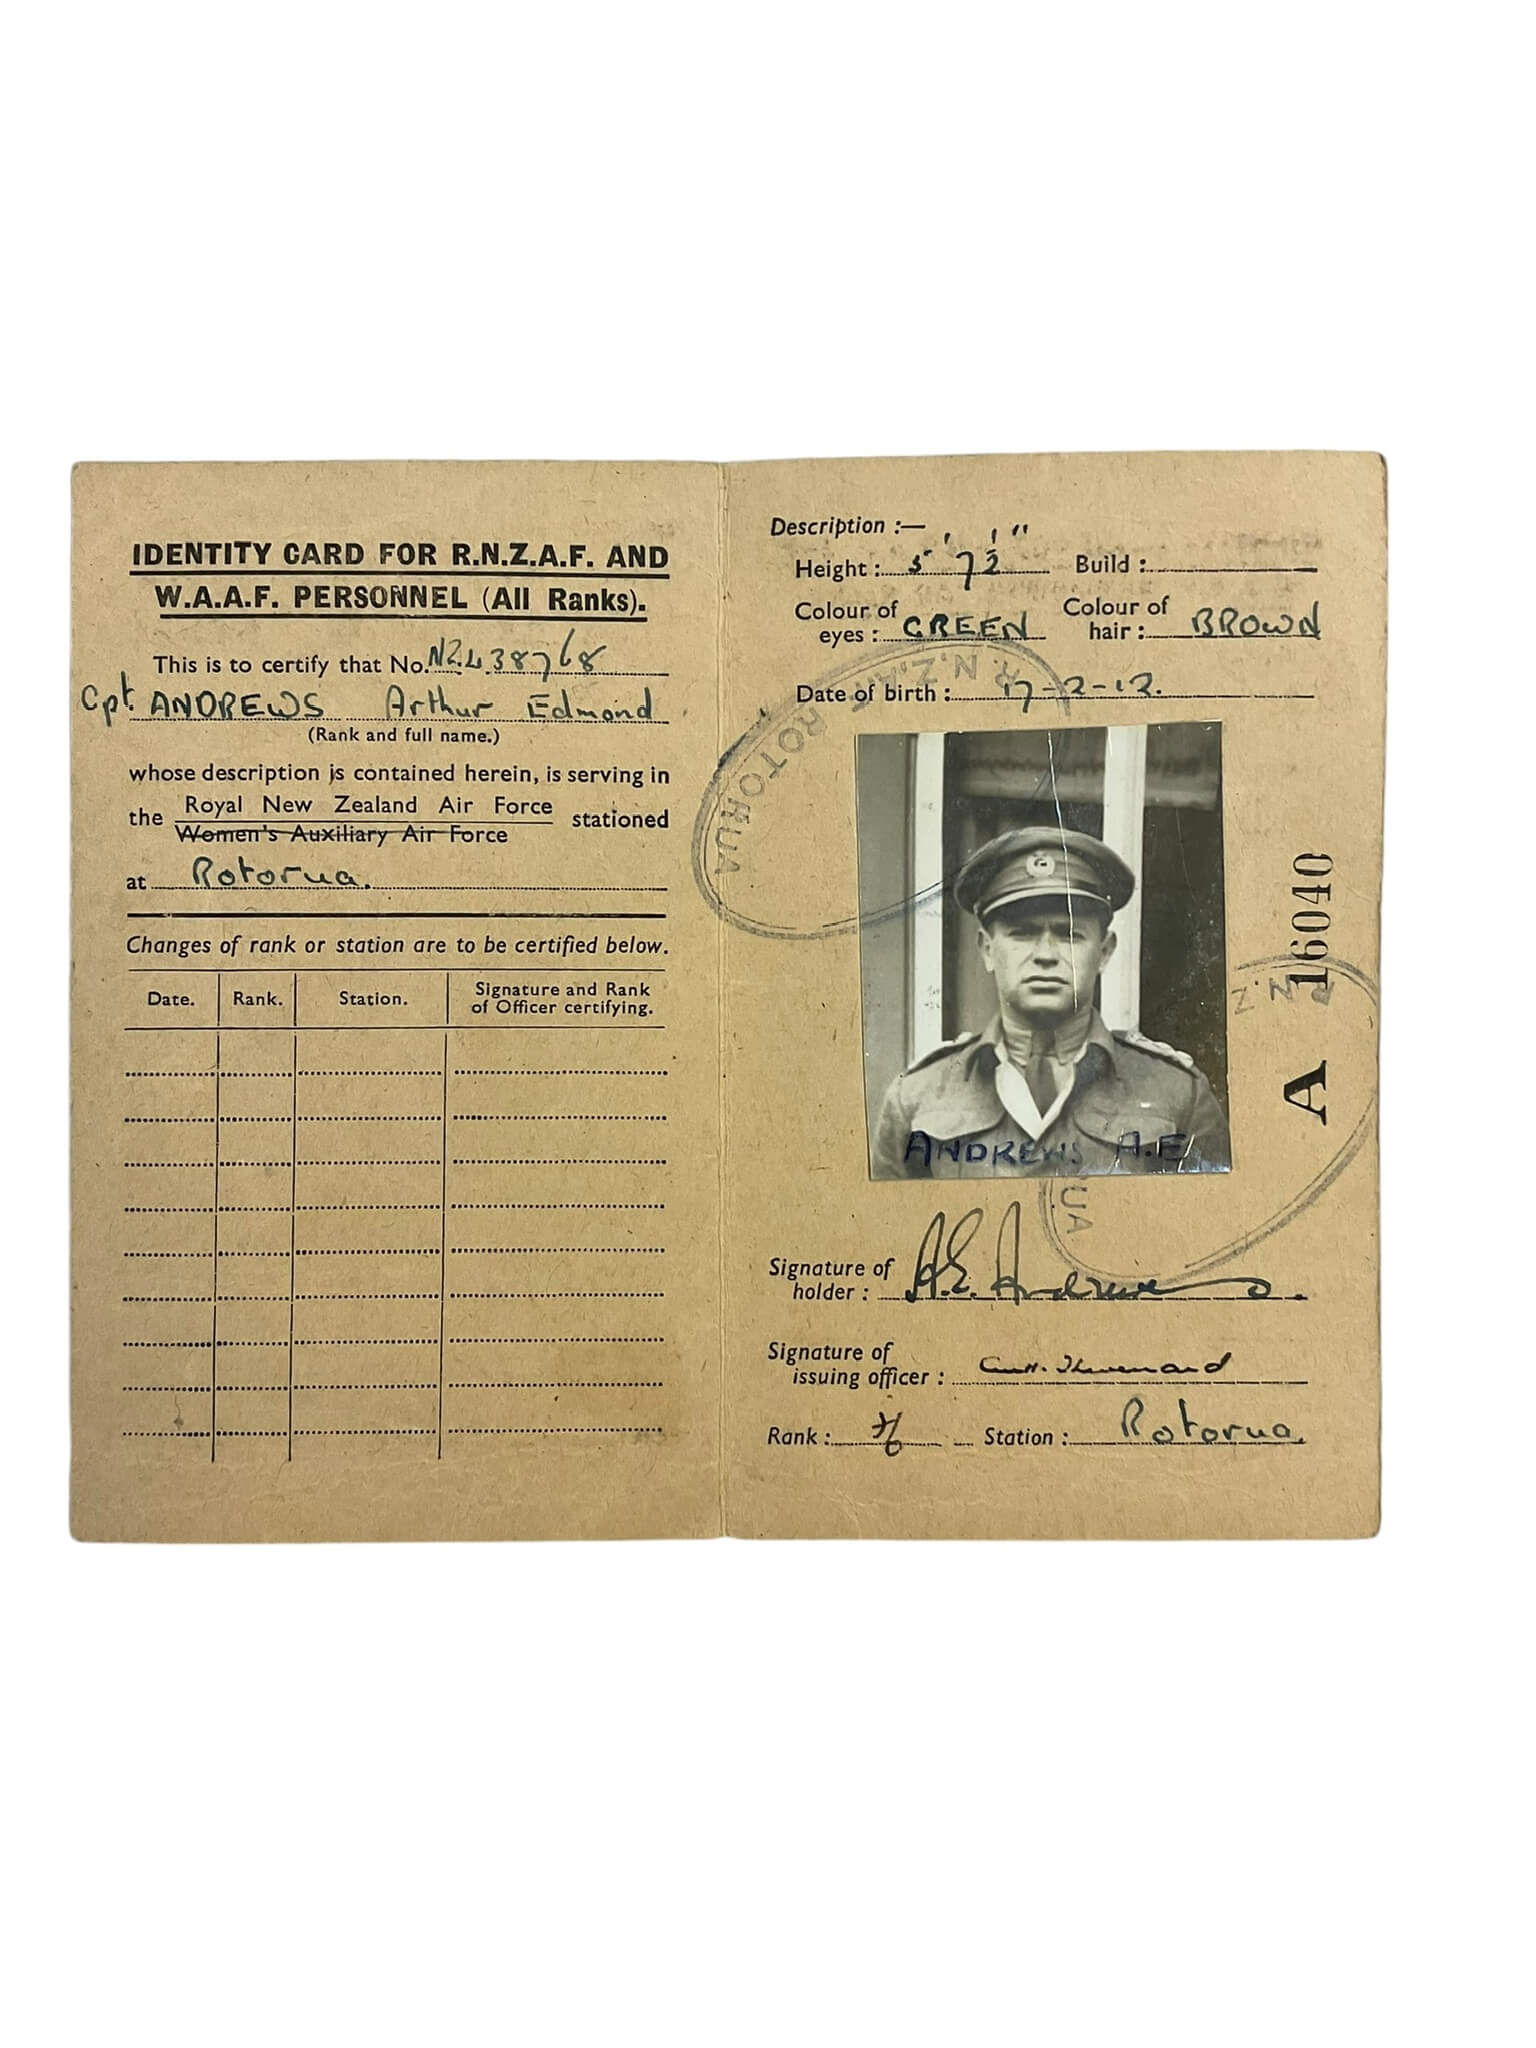 IDENTITY CARD FOR R.N.Z.A.F. AND
W.A.A.F. PERSONNEL (All Ranks).
This is to certify that No. NZ.438768
Cpt. ANDREWS Arthur Edmond
(Rank and full name.)
whose description is contained herein, is serving in
the Royal New Zealand Air Force stationed
Women's Auxiliary Air Force
at Rotorua.
Changes of rank or station are to be certified below.
Date. Rank. Station. Signature and Rank
of Officer certifying.
Description :—
Height : 5' 7½" Build :
Colour of eyes : GREEN Colour of hair : BROWN
Date of birth : 17-2-12.
R.N.Z.A.F. ROTORUA
ROTORUA
A 16040
R.N.Z.
ANDREWS A.E.
UA
Signature of
holder : A.E. Andrews.
Signature of
issuing officer :
Rank : Station : Rotorua.